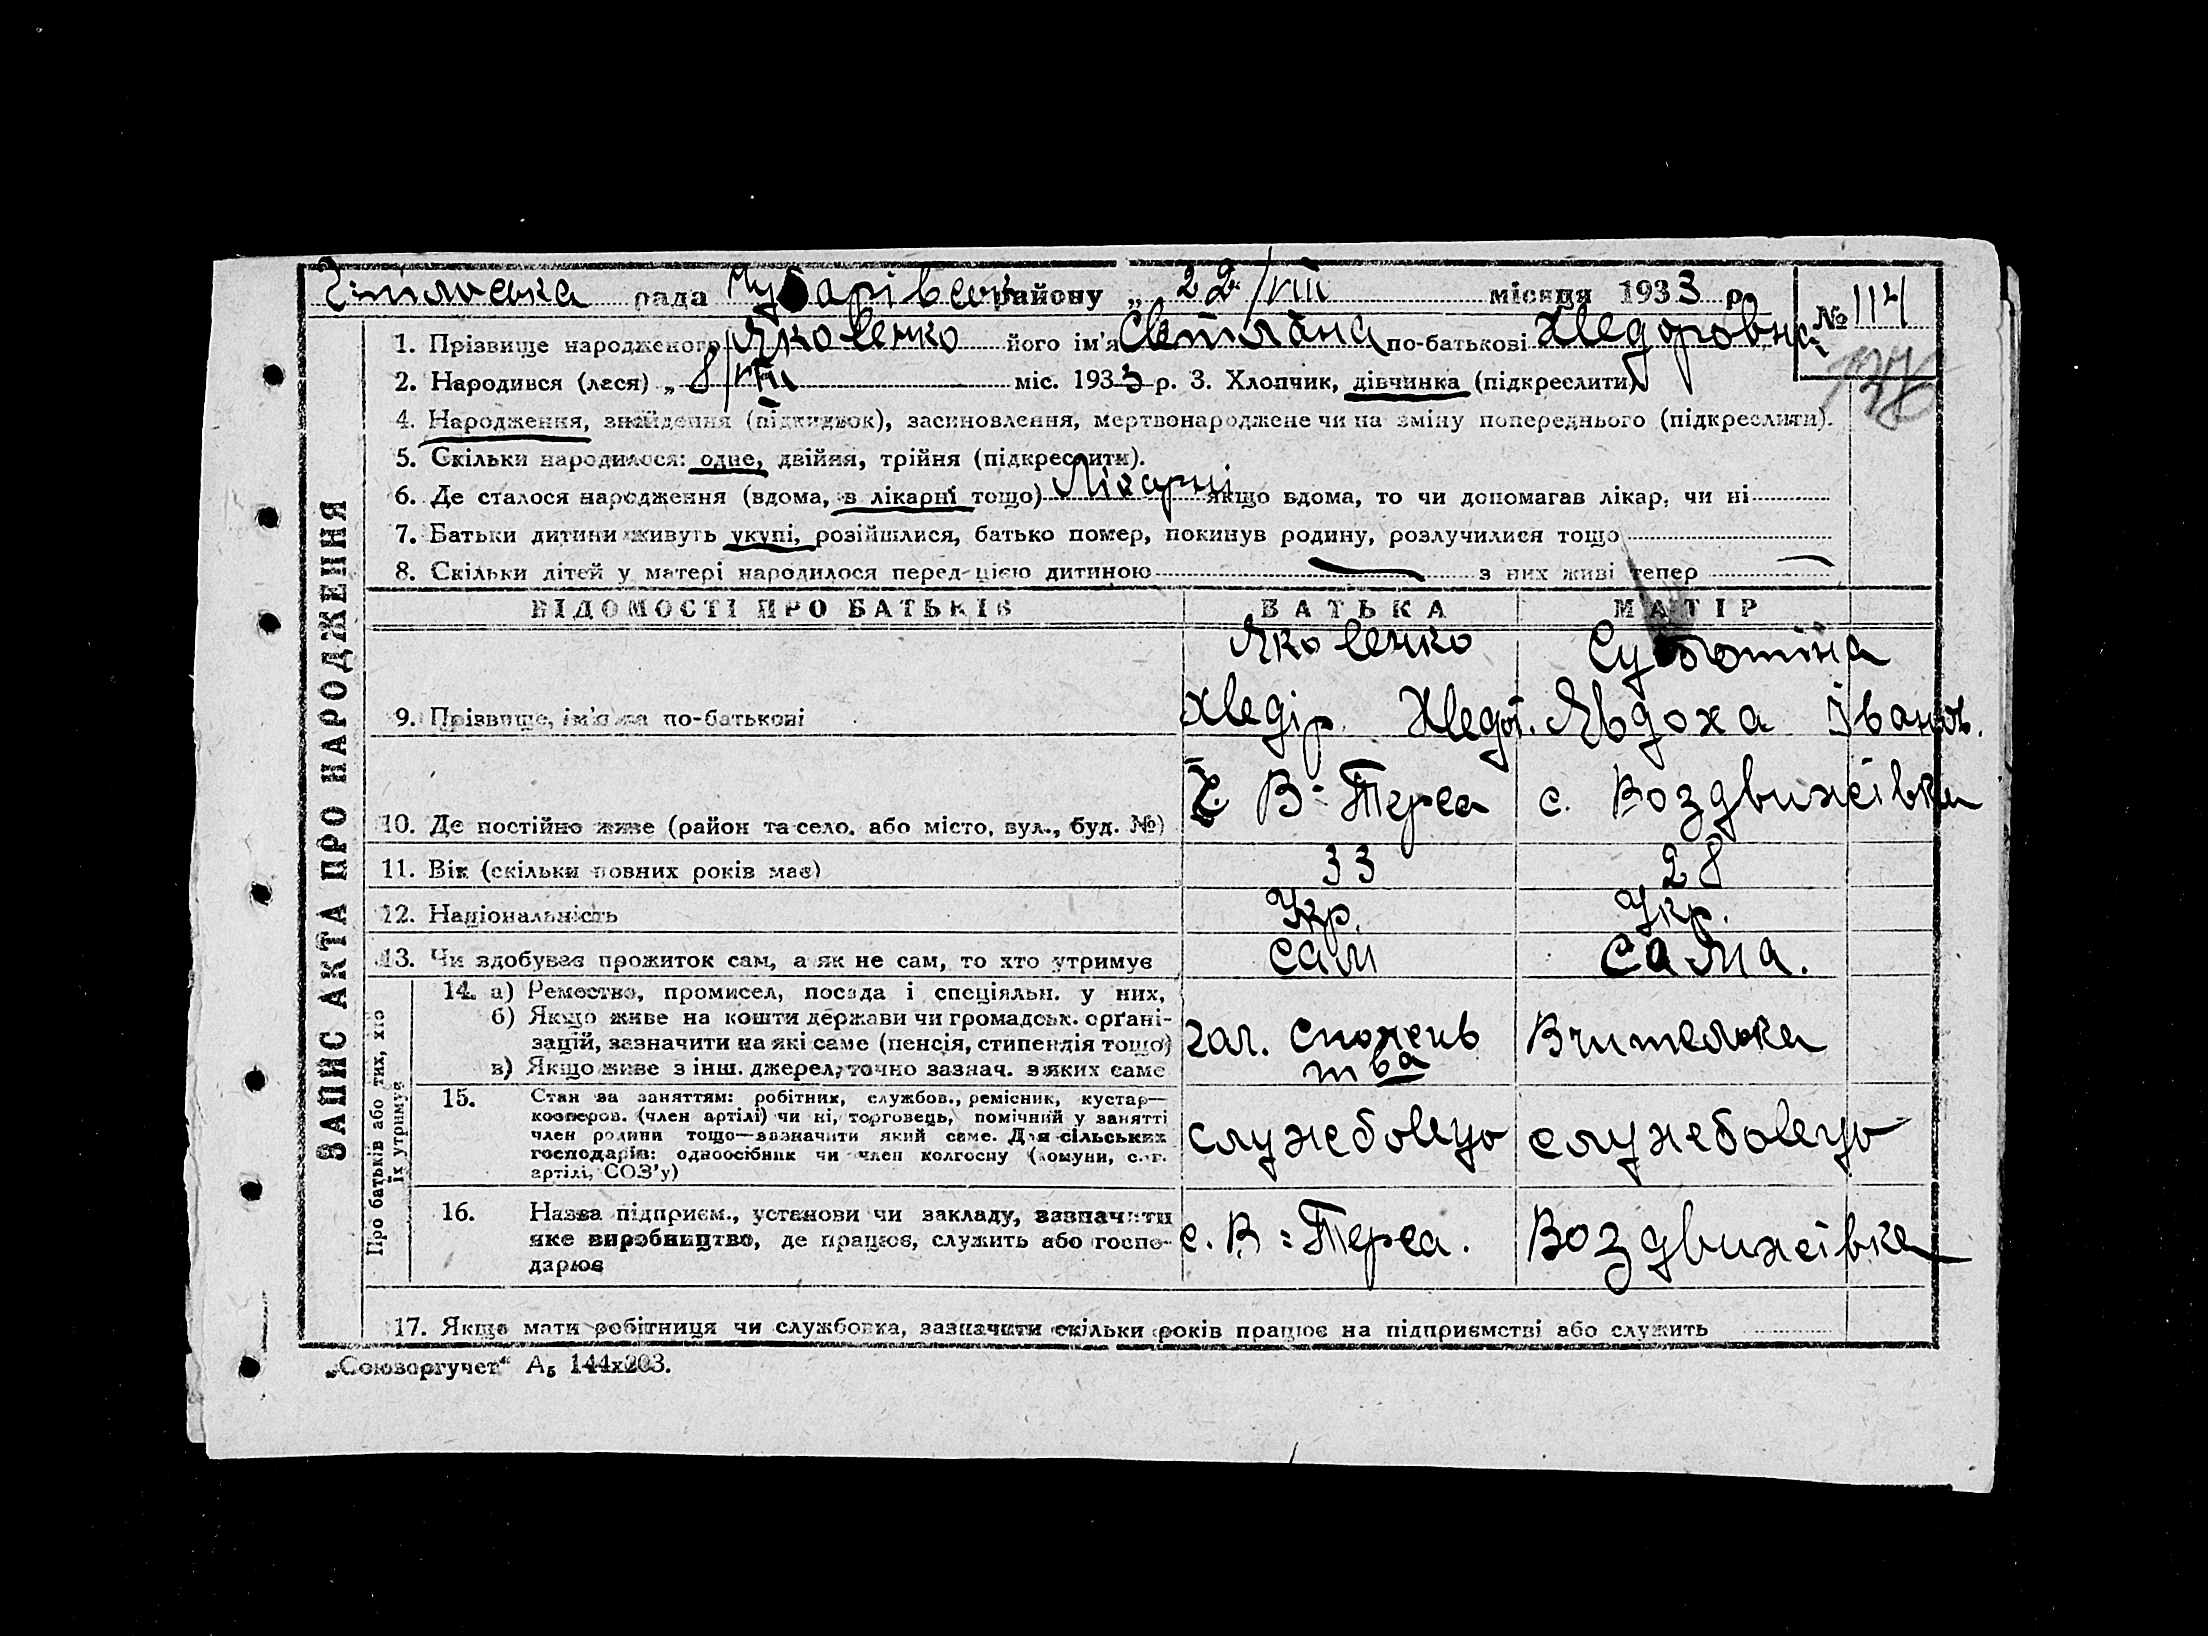 рада Чубарівськ району „ 22/VIII місяця 1933 р. № 114
1. Прізвище народженого Яковенко його ім'я Світлана по-батькові Хведоровна
2. Народився (лася) „ 8/VIII міс. 1933 р. 3. Хлопчик, дівчинка (підкреслити)
4. Народження, знайдення (підкидьок), засиновлення, мертвонароджене чи на зміну попереднього (підкреслити).
5. Скільки народилося: одне, двійня, трійня (підкреслити).
6. Де сталося народження (вдома, в лікарні тощо) Лікарні якщо вдома, то чи допомагав лікар, чи ні
7. Батьки дитини живуть укупі, розійшлися, батько помер, покинув родину, розлучилися тощо
8. Скільки дітей у матері народилося перед цією дитиною — з них живі тепер —
ЗАПИС АКТА ПРО НАРОДЖЕННЯ
ВІДОМОСТІ ПРО БАТЬКІВ БАТЬКА МАТІР
Яковенко Суботіна
9. Прізвище, ім'я та по-батькові Хведір Хведі. Явдоха Іванов.
10. Де постійно живе (район та село, або місто, вул., буд. №) В-Терса с. Воздвижівка
11. Вік (скільки повних років має) 33 28
12. Національність Укр. Укр.
13. Чи здобуває прожиток сам, а як не сам, то хто утримує сам сама.
Про батьків або тих, хто
їх утримує
14. а) Ремество, промисел, посада і спеціяльн. у них,
б) Якщо живе на кошти держави чи громадськ. орґані-
зацій, зазначити на які саме (пенсія, стипендія тощо)
в) Якщо живе з інш. джерел, точно зазнач. з яких саме
гол. спожив
тва
Вчителька
15. Стан за заняттям: робітник, службов., ремісник, кустар—
кооперов. (член артілі) чи ні, торговець, помічний у занятті
член родини тощо—зазначити який саме. Для сільських
господарів: одноосібник чи член колгоспу (комуни, с.-г.
артілі, СОЗ'у)
службовець службовець
16. Назва підприєм., установи чи закладу, зазначити
яке виробництво, де працює, служить або госпо-
дарює
с. В-Терса. Воздвижівка
17. Якщо мати робітниця чи службовка, зазначити скільки років працює на підприємстві або служить
„Союзоргучет“ А₅ 144х203.